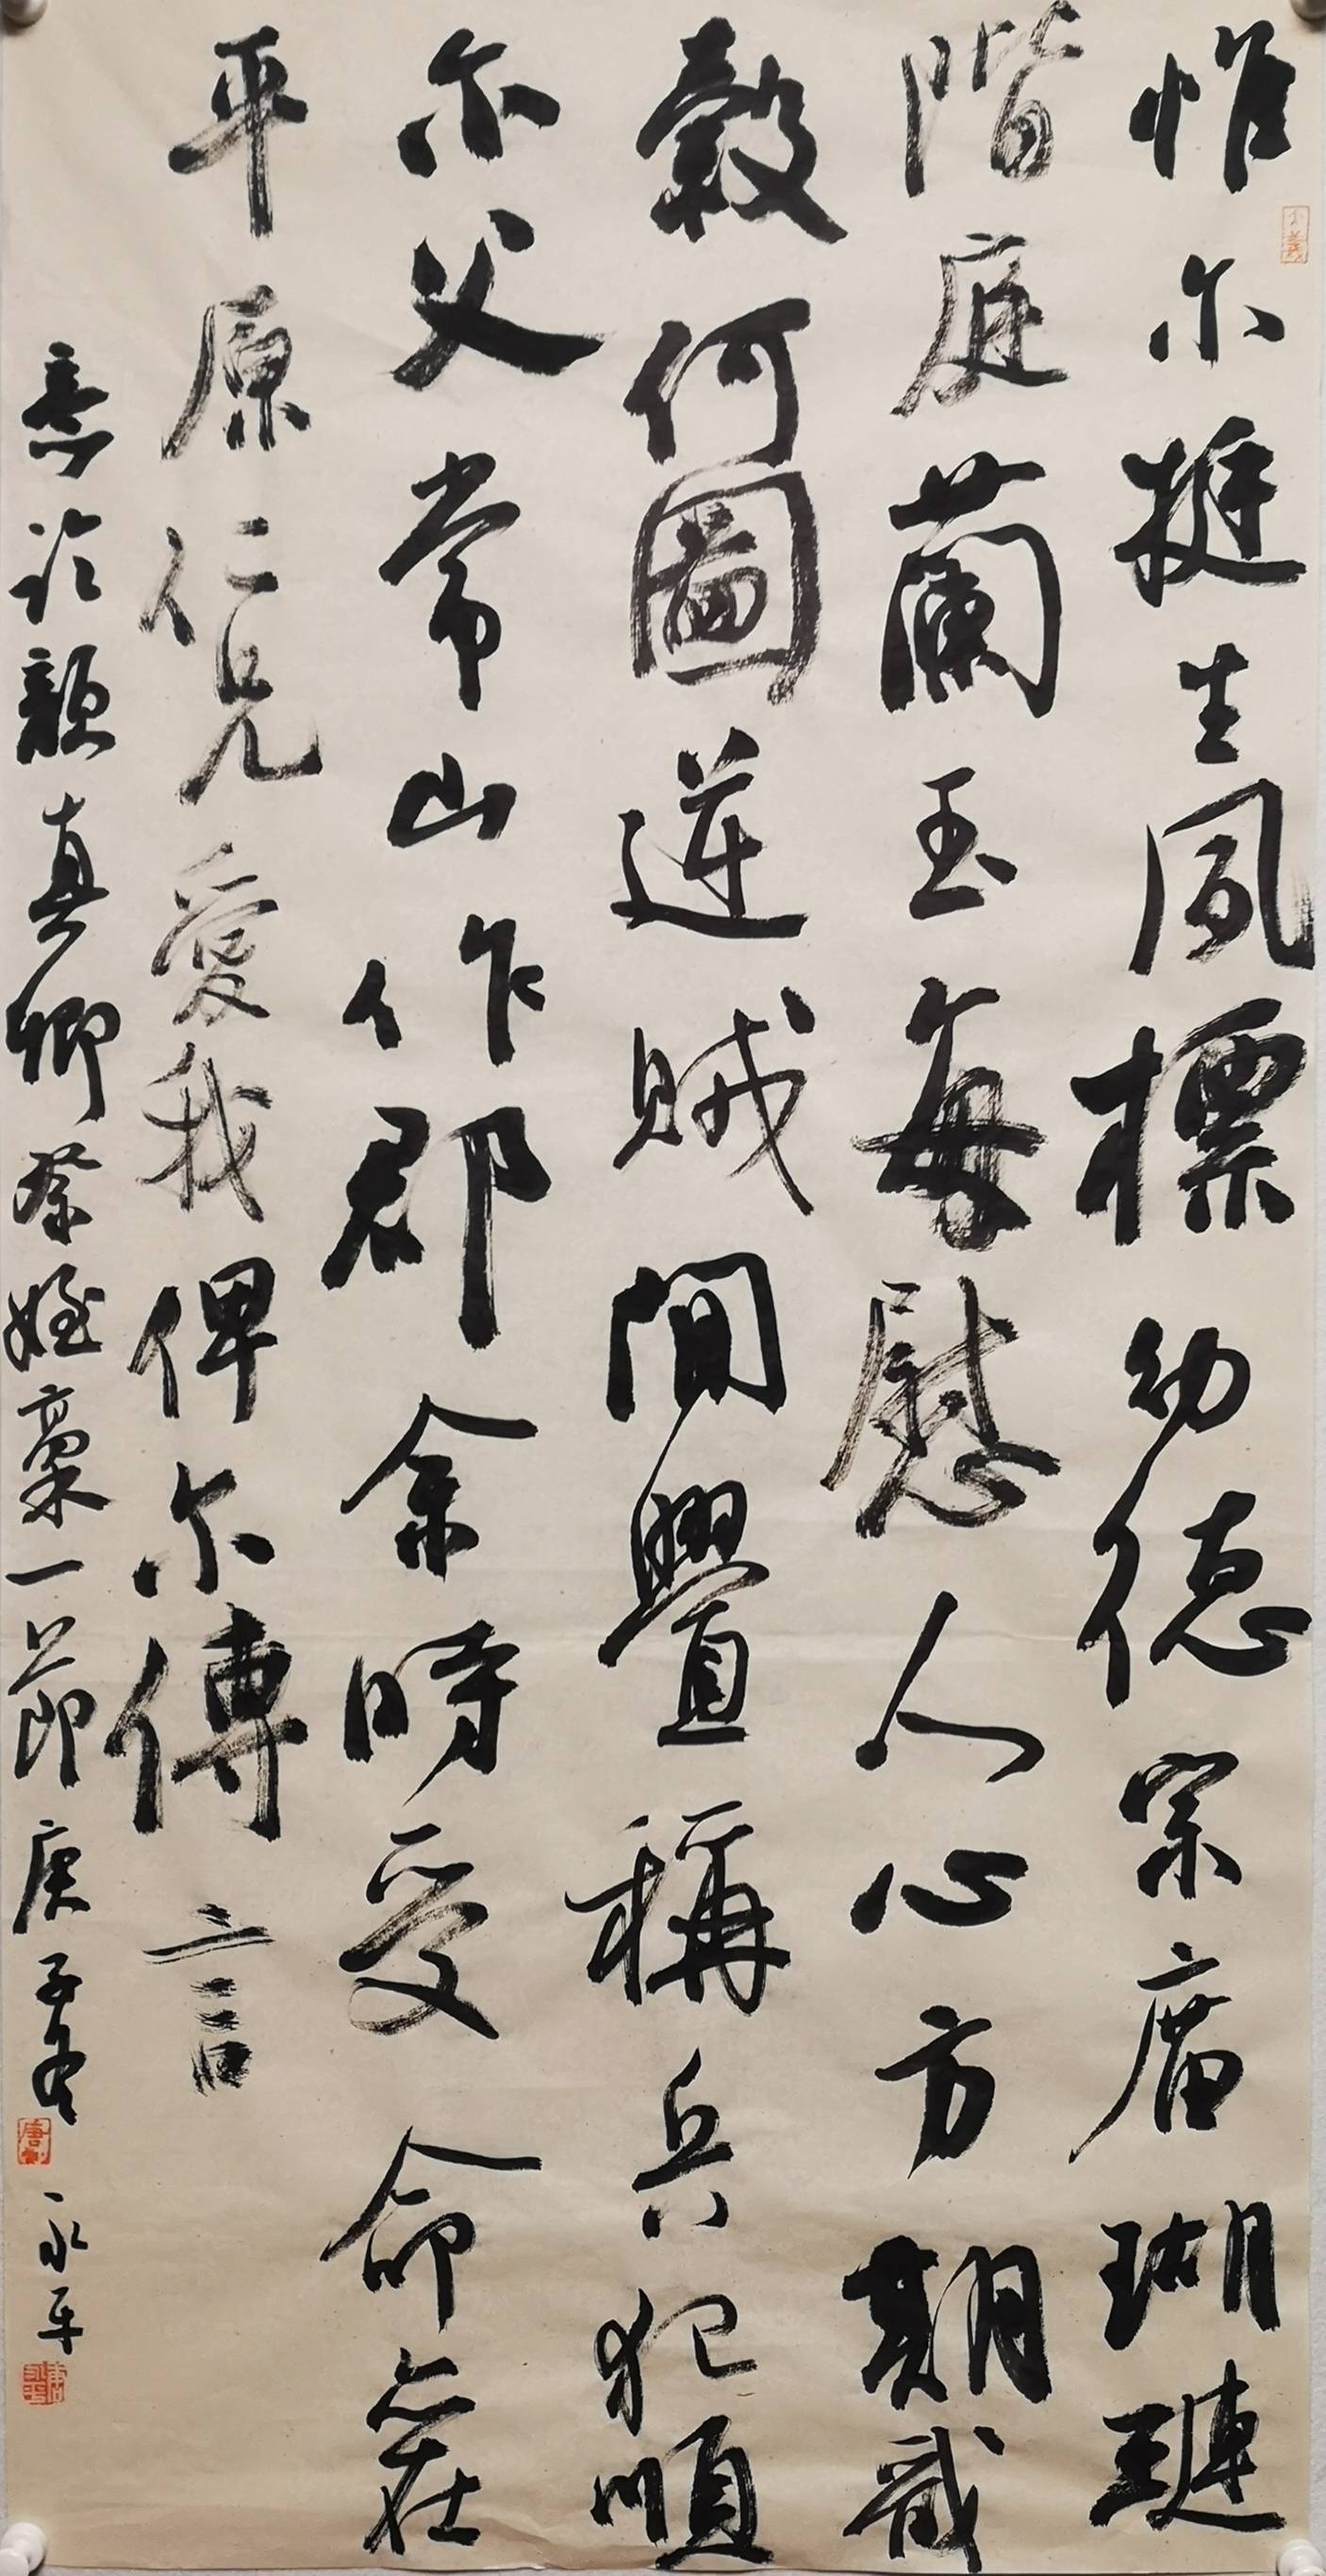 惟尔挺生夙標幼德宗廟瑚璉
階庭蘭玉每慰人心方期戩
穀何圖逆賊閒舋稱兵犯順
尔父常山作郡余時受命亦在
平原仁兄愛我俾尔傳言
意臨顏真卿祭姪稾一節庚子冬
永平